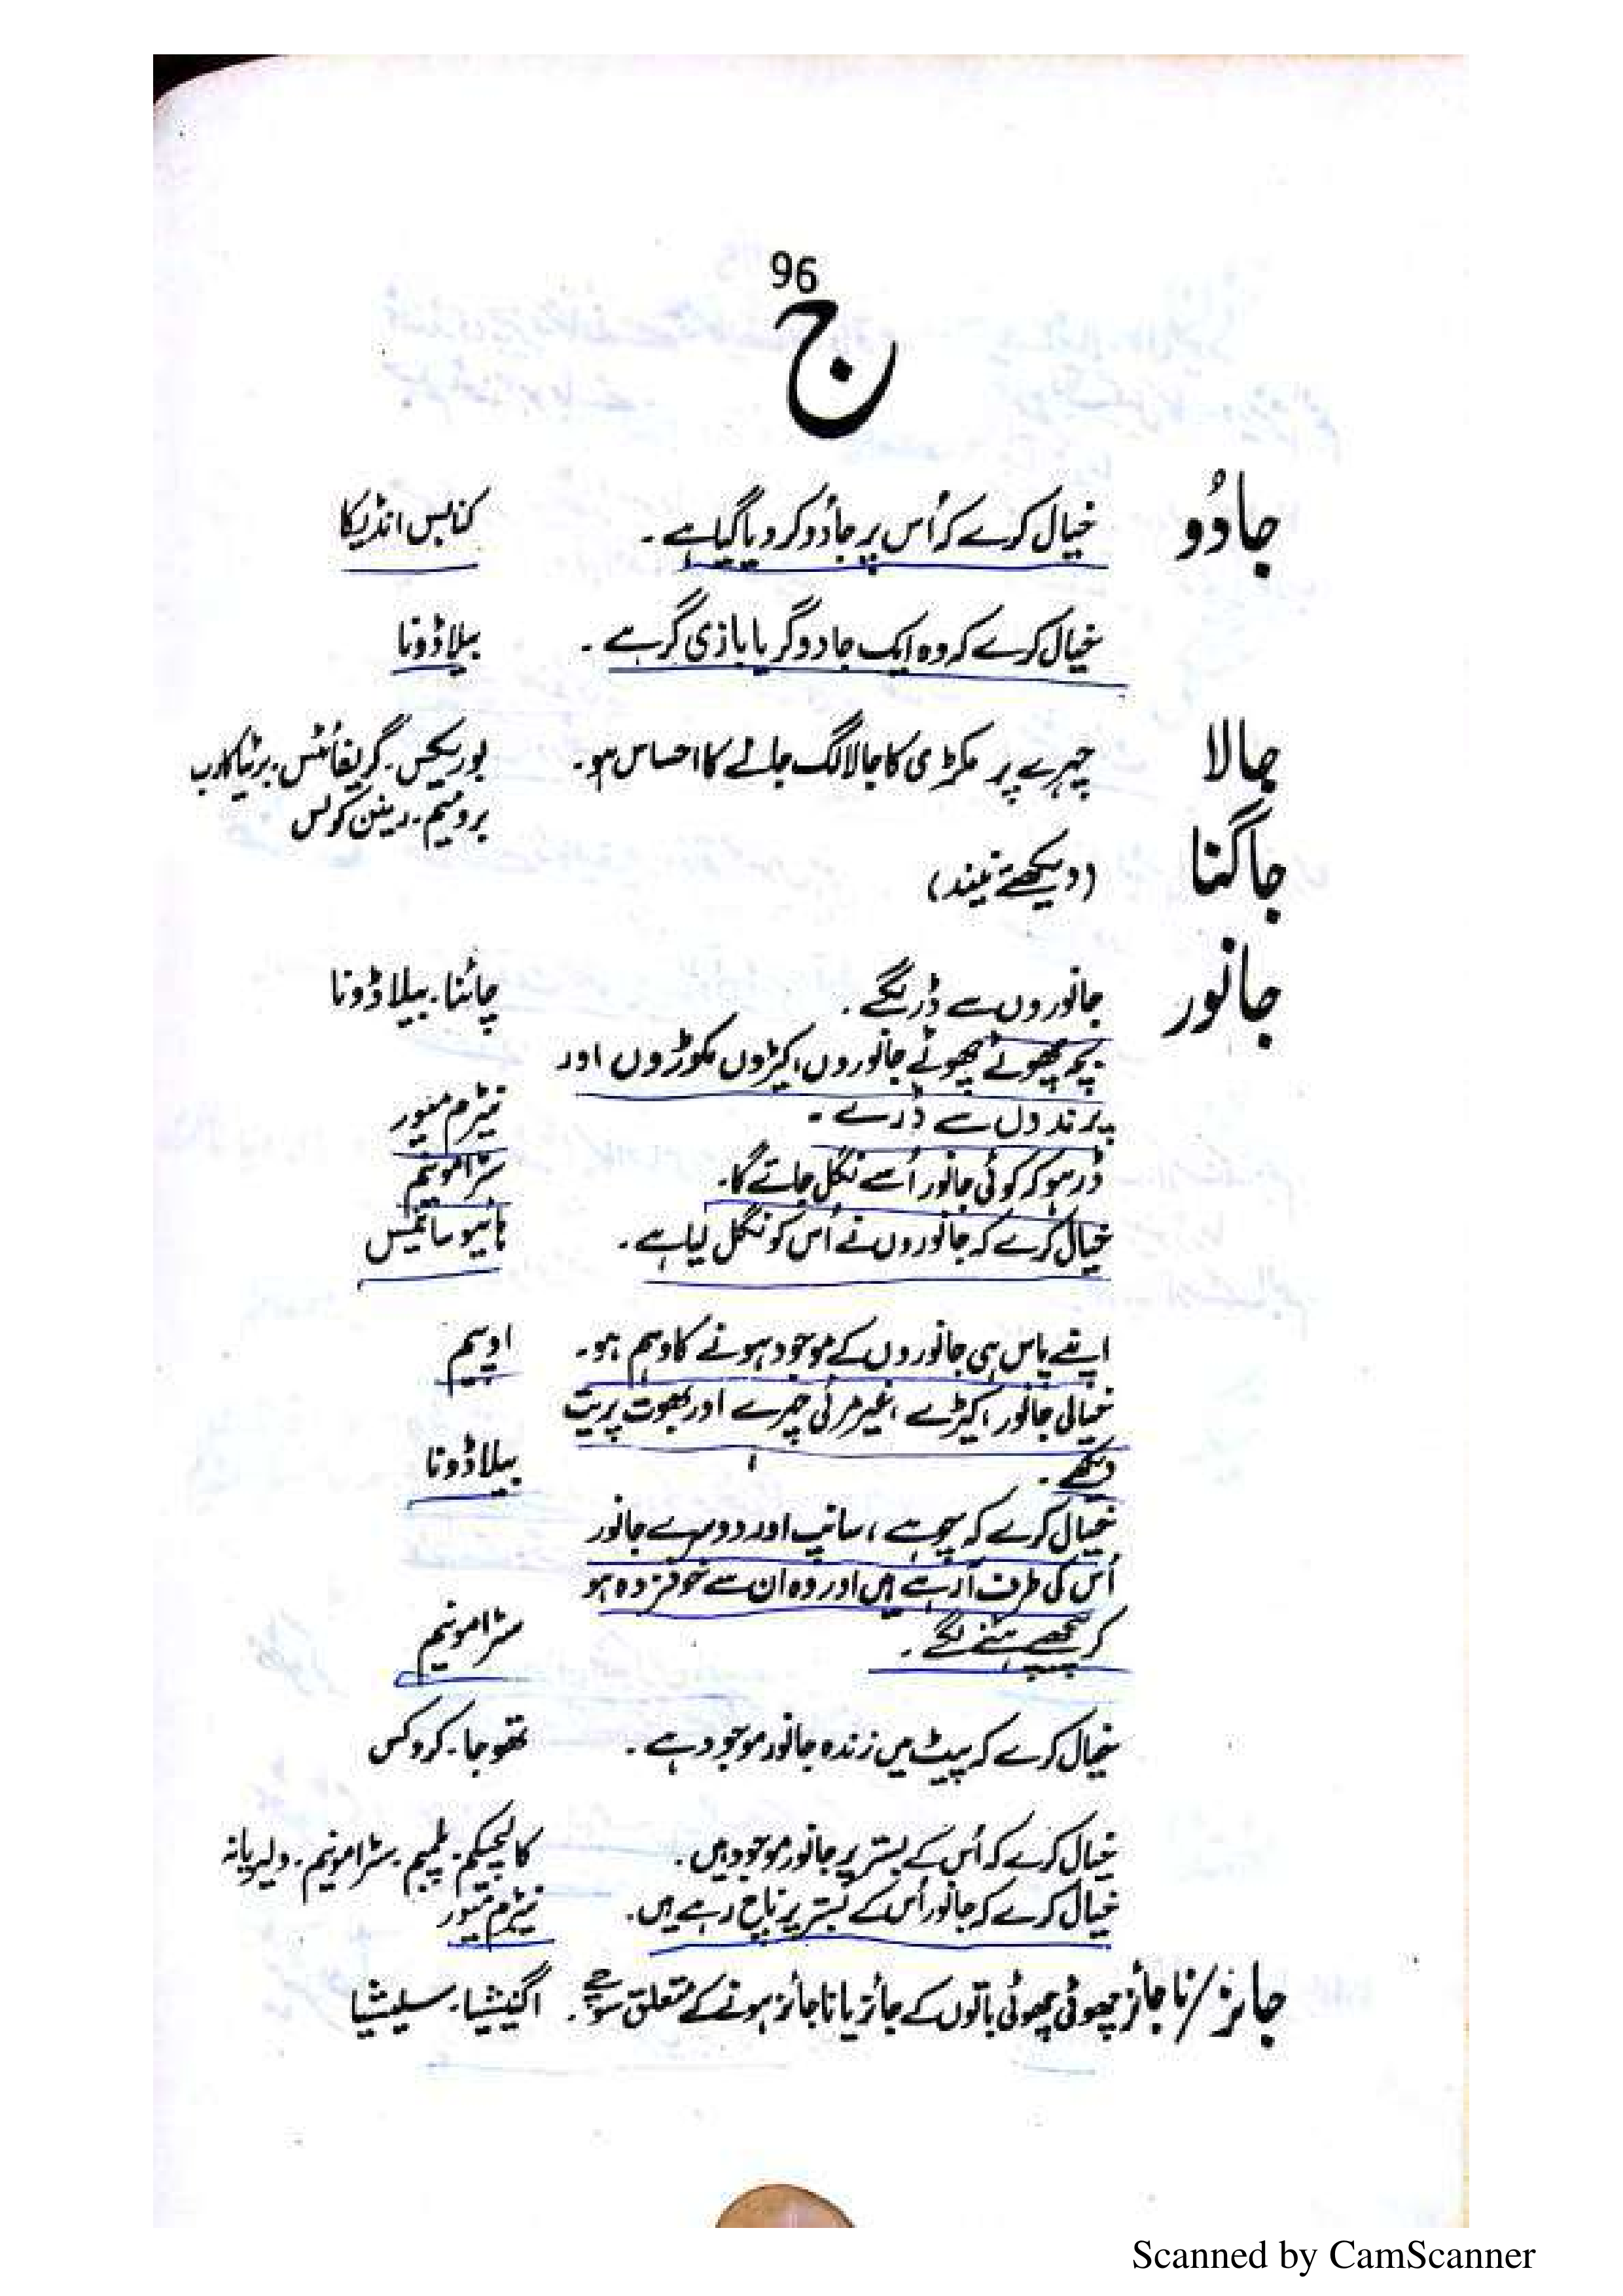 96
ج
جادُو خیال کرے کہ اُس پر جادُو کر دیا گیا ہے ۔ کنابس انڈیکا
خیال کرے کہ وہ ایک جادوگر یا بازی گر ہے ۔ بیلاڈونا
جالا چہرے پر مکڑی کا جالا لگ جانے کا احساس ہو۔ بوریکس۔ گریفائٹس۔ برٹیاکارب
برومیم۔ رینن کولس
جاگنا (دیکھئے نیند)
جانور جانوروں سے ڈر لگے ۔ چائنا۔ بیلاڈونا
بچہ چھوٹے چھوٹے جانوروں، کیڑوں مکوڑوں اور
پرندوں سے ڈرے ۔ نیٹرم میور
ڈر ہو کہ کوئی جانور اُسے نگل جائے گا۔ سٹرامونیم
خیال کرے کہ جانوروں نے اُس کو نگل لیا ہے ۔ ہائیوسائمیس
اپنے پاس ہی جانوروں کے موجود ہونے کا وہم ہو۔ اوپیم
خیالی جانور، کیڑے، غیر مرئی چہرے اور بھوت پریت
دیکھے ۔ بیلاڈونا
خیال کرے کہ چوہے، سانپ اور دوسرے جانور
اُس کی طرف آ رہے ہیں اور وہ ان سے خوفزدہ ہو
کر پیچھے ہٹنے لگے ۔ سٹرامونیم
خیال کرے کہ پیٹ میں زندہ جانور موجود ہے ۔ تھوجا۔ کروکس
خیال کرے کہ اُس کے بستر پر جانور موجود ہیں۔ کالچیکم۔ پلمبم۔ سٹرامونیم۔ ولیریانہ
خیال کرے کہ جانور اُس کے بستر پر ناچ رہے ہیں۔ نیٹرم میور
جائز/ناجائز چھوٹی چھوٹی باتوں کے جائز یا ناجائز ہونے کے متعلق سوچے ۔ اگنیشیا۔ سلیشیا
Scanned by CamScanner